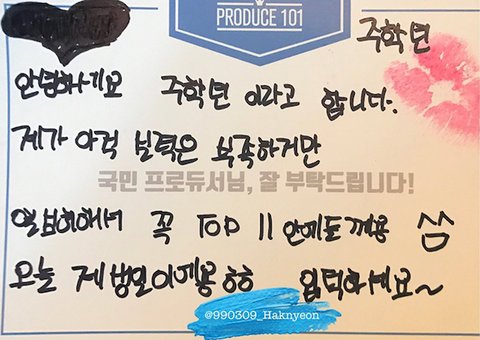 PRODUCE 101
주학년
안녕하세요 주학년 이라고 합니다.
제가 아직 실력은 부족하지만
국민 프로듀서님, 잘 부탁드립니다!
열심히해서 꼭 TOP 11 안에들께용
오늘 제 생일이에용 ㅎㅎ 입덕하세요~
@990309_Haknyeon